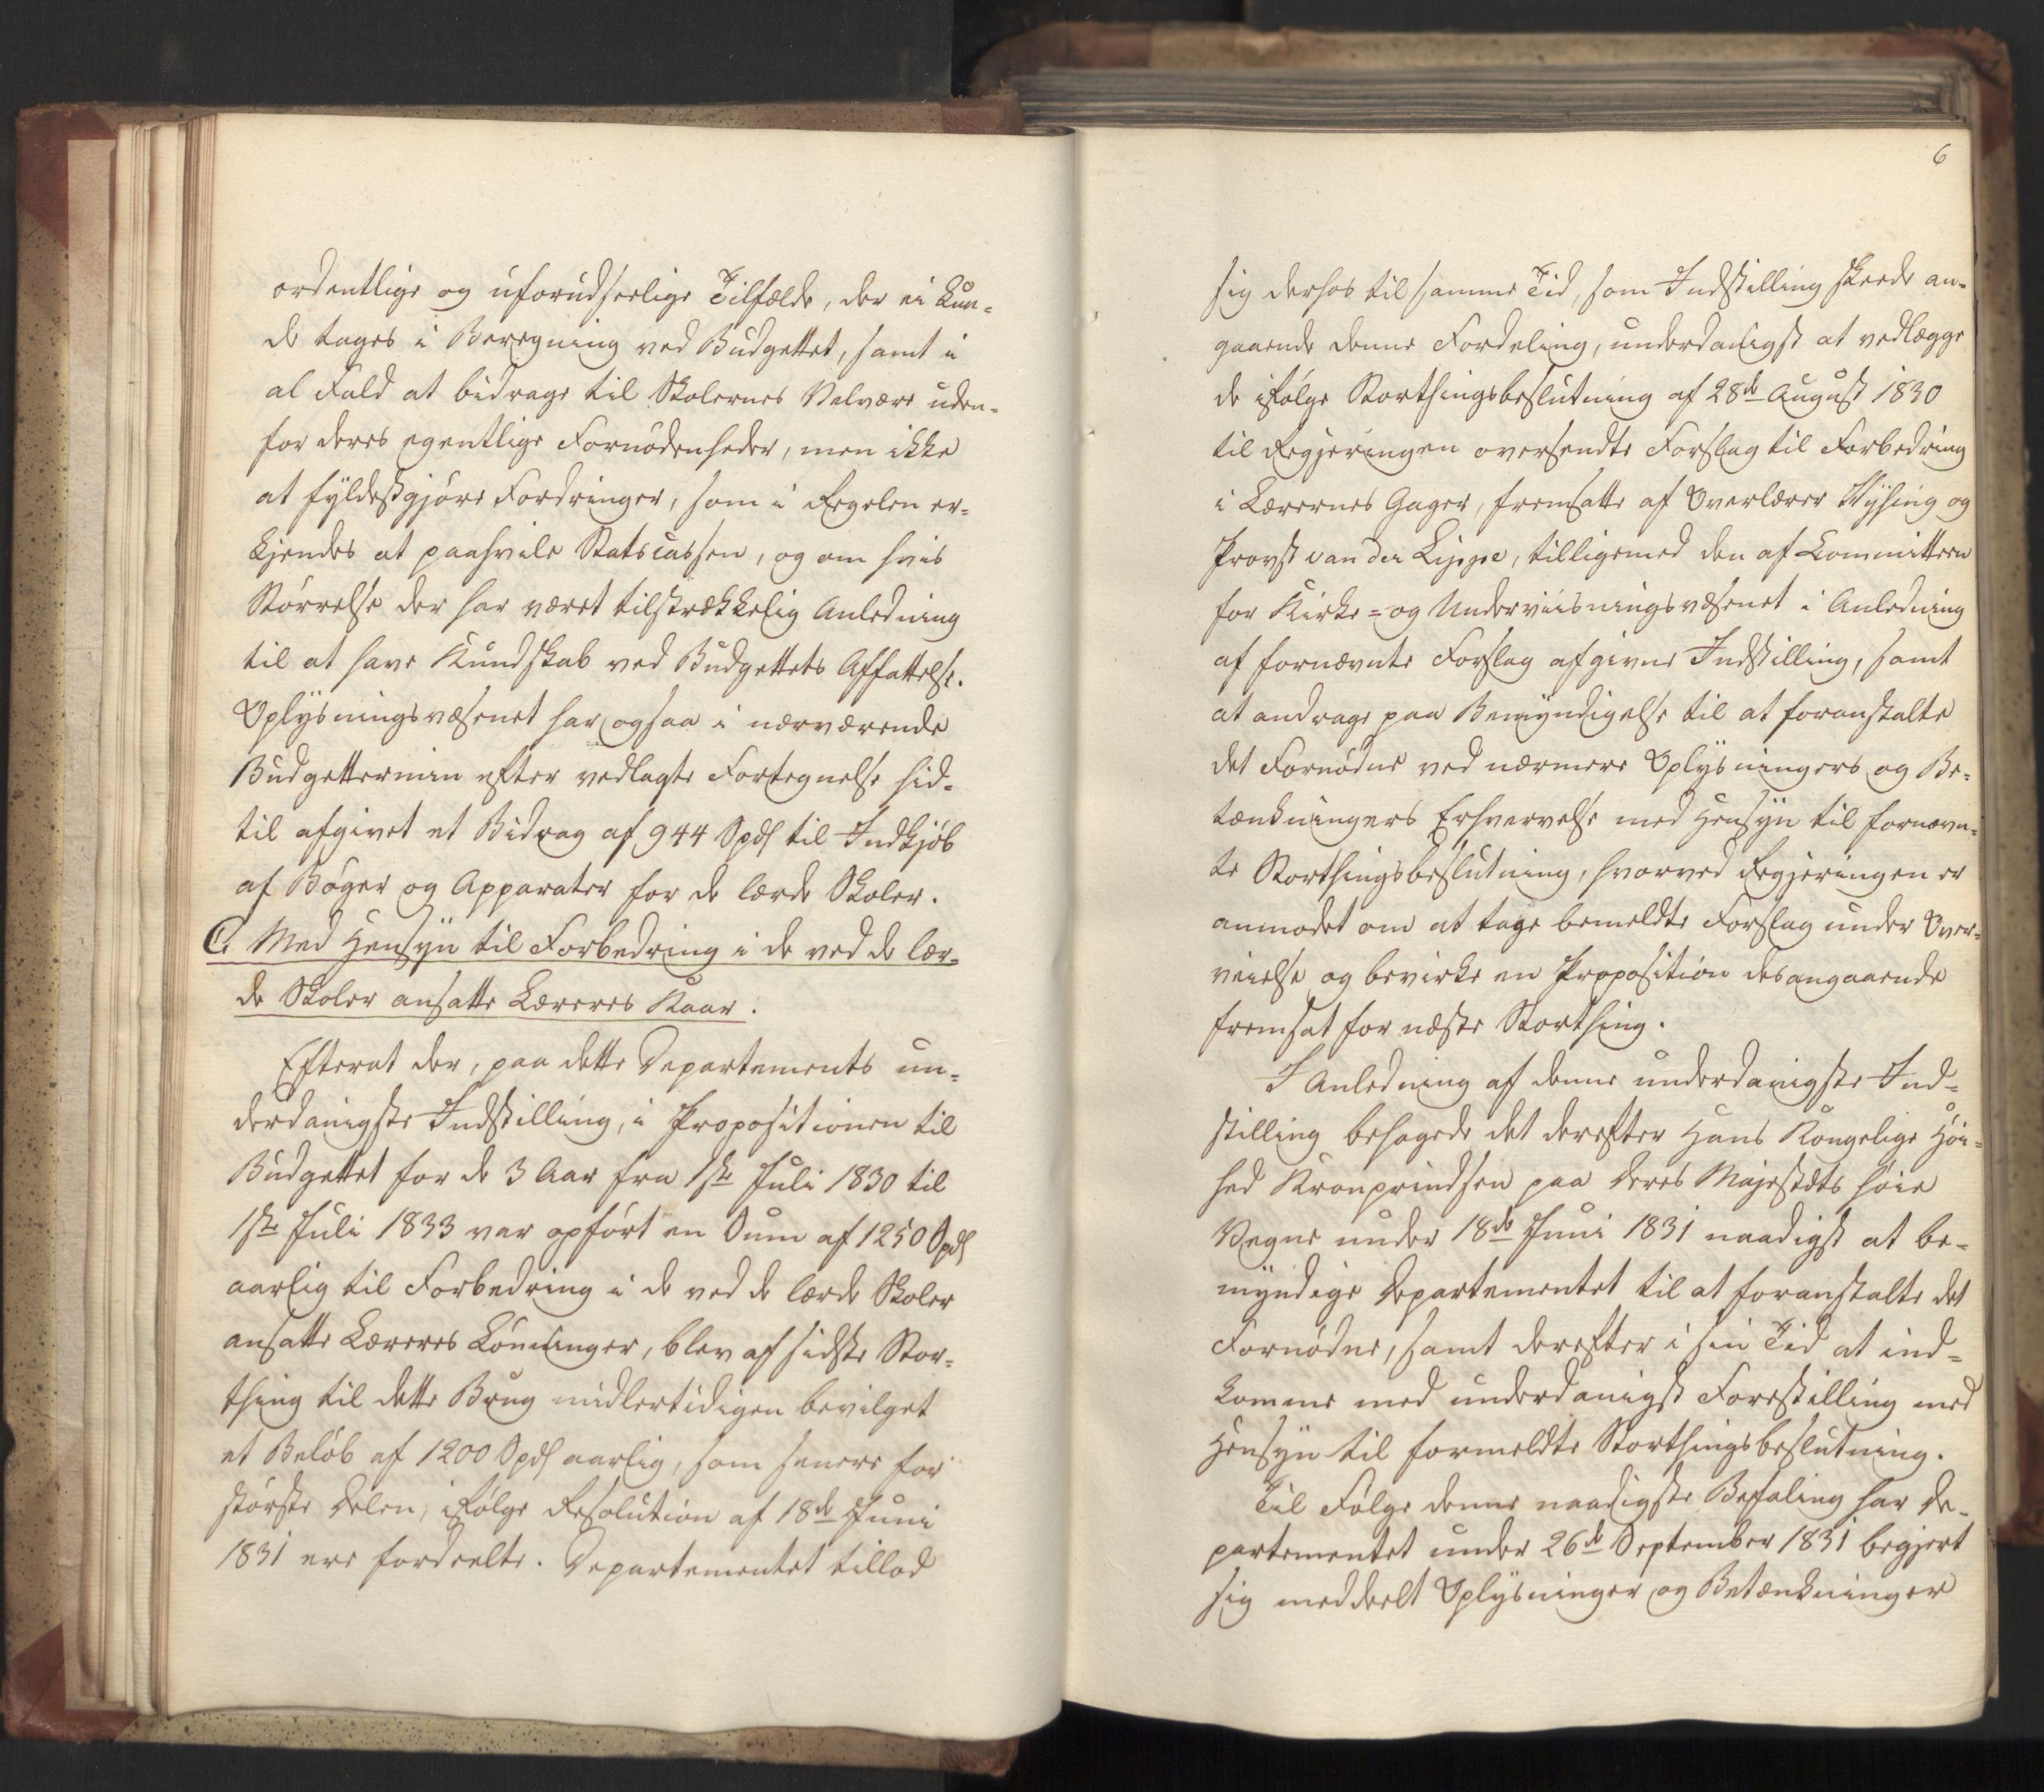 ordentlige og uforudseelige Tilfælde, der ei kun-
de tages i Beregning ved Budgettet, samt i
al Fald at bidrage til Skolernes Velvære uden-
for deres egentlige Fornødenheder, men ikke
at fyldestgjøre Fordringer, som i Regelen er-
kjendes at paahvile Statscassen, og om hvis
Størrelse der har været tilstrækkelig Anledning
til at have Kundskab ved Budgettets Affattelse.
Oplysningsvæsenet har ogsaa i nærværende
Budgettermin efter vedlagte Fortegnelse hid-
til afgivet et Bidrag af 944 Spdl til Indkjøb
af Bøger og Apparater for de lærde Skoler.
C. Med Hensyn til Forbedring i de ved de lær-
de Skoler ansatte Læreres Kaar.
Efterat der, paa dette Departements un-
derdanigste Indstilling, i Propositionen til
Budgettet for de 3 Aar fra 1ste Juli 1830 til
1ste Juli 1833 var opført en Sum af 1250 Spdl
aarlig til Forbedring i de ved de lærde Skoler
ansatte Læreres Lønninger, blev af sidste Stor-
thing til dette Brug midlertidigen bevilget
et Beløb af 1200 Spdl aarlig, som senere for
største Delen, ifølge Resolution af 18de Juni
1831 ere fordeelte. Departementet tillod
6
sig derhos til samme Tid, som Indstilling skeede an-
gaaende denne Fordeling, underdanigst at vedlægge
de ifølge Storthingsbeslutning af 28de August 1830
til Regjeringen oversendte Forslag til Forbedring
i Lærernes Gager, fremsatte af Overlærer Thysing og
Provst van der Lippe, tilligemed den af Committeen
for Kirke- og Underviisningsvæsenet i Anledning
af fornævnte Forslag afgivne Indstilling, samt
at andrage paa Bemyndigelse til at foranstalte
det Fornødne ved nærmere Oplysningers og Be-
tænkningers Erhvervelse med Hensyn til fornævn-
te Storthingsbeslutning, hvorved Regjeringen er
anmodet om at tage bemeldte Forslag under Over-
veielse og bevirke en Proposition desangaaende
fremsat for næste Storthing.
I Anledning af denne underdanigste Ind-
stilling behagede det derefter Hans Kongelige Høi-
hed Kronprindsen paa Deres Majestæts høie
Vegne under 18de Juni 1831 naadigst at be-
myndige Departementet til at foranstalte det
Fornødne, samt derefter i sin Tid at ind-
komme med underdanigst Forestilling med
Hensyn til formeldte Storthingsbeslutning.
Til Følge denne naadigste Befaling har De-
partementet under 26de September 1831 begjert
sig meddeelt Oplysninger og Betænkninger